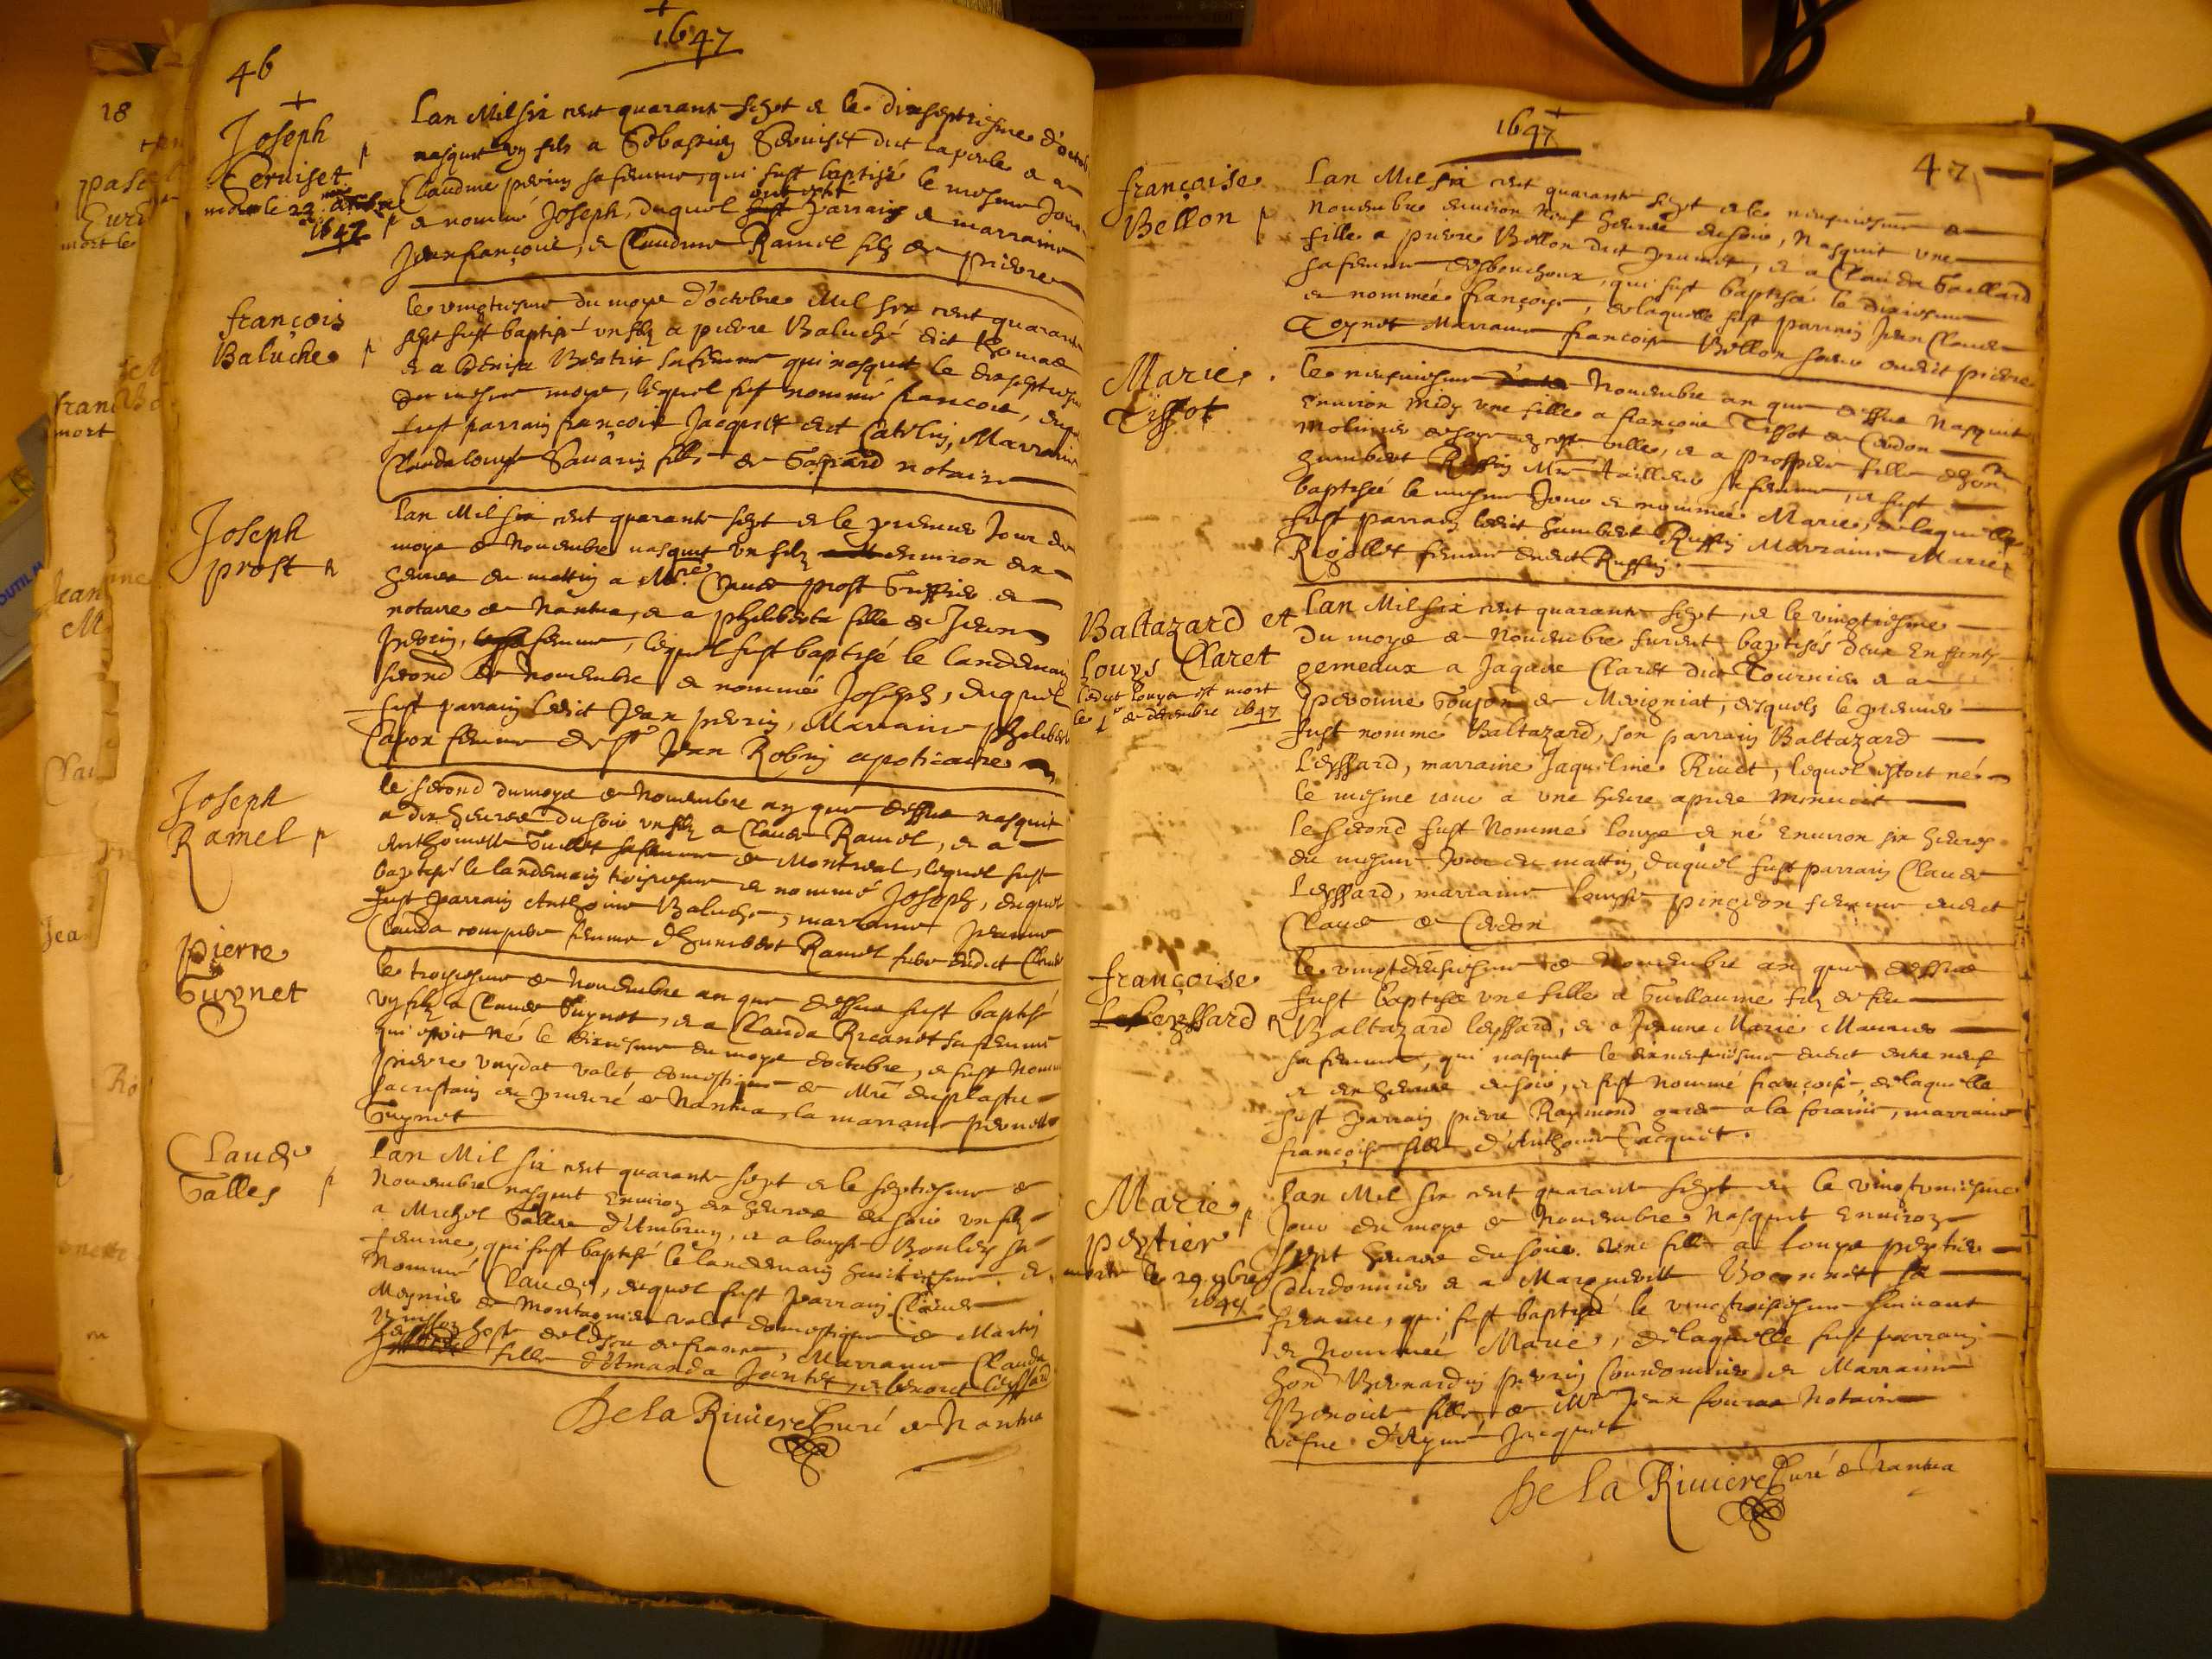 46
1647
Joseph
Seruiset
mort le 22
1647
Lan Mil six cent quarante sept & le dixseptiesme d'octob
nasquit vn fils a Sebastien Seruiset dict la perle & a
Claudine perrin sa femme, qui fust baptisé le mesme Jour
& nommé Joseph, duquel ont esté parrain & marraine
Jean françois, & Claudine Ramel filz de pierre
françois
Baluche
le vingtiesme du moys d'octobre Mil six cent quarante
sept fust baptisé vn filz a pierre Baluche dict
& a Denise sa femme qui nasquit le dixseptiesme
du mesme moys, lequel fust nommé françois, duquel
fust parrain françois Jacquet dict Catelin, Marraine
Clauda louyse Sauarin fille de Gaspard notaire
Joseph
prost
Lan Mil six cent quarante sept & le premier Jour du
moys de Nouembre nasquit vn filz enuiron dix
heures du mattin a Mre Claude prost Greffier &
notaire de Nantua, & a philiberte fille de Jean
perrin, sa femme, lequel fust baptisé le landemain
second de Nouembre & nommé Joseph, duquel
fust parrain ledict Jean perrin, Marraine philiberte
femme de Sr Jean Robin apoticaire
Joseph
Ramel
le second du moys de Nouembre an que dessus nasquit
a dix heures du soir vn filz a Claude Ramel, & a
Anthoinette sa femme de Montreal, lequel fust
baptisé le landemain troisiesme & nommé Joseph, duquel
fust parrain Anthoine Baluche, marraine Jeanne
Clauda femme d'humbert Ramel frere dudict Claude
pierre
Guynet
le troisiesme de Nouembre an que dessus fust baptisé
vn filz a Claude Guynet, & a Clauda sa femme
qui estoit né le du moys doctobre, & fust nommé
pierre valet domestique de Mre duplastre
sacristain du prieuré de Nantua, la marraine pernette
Guynet
Claude
Galles
Lan Mil six cent quarante sept & le septiesme de
Nouembre nasquit enuiron dix heures du soir vn filz
a Michel Galles d'Ambrun, & a louyse sa
femme, qui fust baptisé le landemain huictiesme &
Nommé Claude, duquel fust parrain Claude
Meynier de Montagnieu valet domestique de Martin
hoste de lescu de france, Marraine Clauda
fille d'Amanda Jantet, & benoit leyssard
De la Riuiere Curé de Nantua
1647
47
françoise
Bellon
Lan Mil six cent quarante sept & le neufuiesme de
Nouembre enuiron neuf heures du soir, Nasquit vne
fille a pierre Bellon dict & a Clauda Gaillard
sa femme qui fust baptisée le dixiesme
& nommée françoise, de laquelle fust parrain Jean Claude
Toynet Marraine françoise Bellon soeur dudict pierre
Marie
Tissot
le neufuiesme Nouembre an que dessus Nasquit
Enuiron midy vne fille a françois Tissot de Cerdon
Molinier de ceste ville, & a prospere fille d'hon
humbert Ruffin Mre tailleur sa femme, & fust
baptisée le mesme Jour & nommée Marie, de laquelle
fust parrain ledict humbert Ruffin Marraine Marie
Rigollet femme dudict Ruffin
Baltazard et
Louys Claret
ledict louys est mort
le 1er de decembre 1647
Lan Mil six cent quarante sept, & le vingtiesme
du moys de Nouembre furent baptisés deux Enfants
gemeaux a Jaques Claret dict Tournier & a
peronne Goujon de Meigniat, desquels le premier
fust nommé Baltazard, son parrain Baltazard
Leyssard, marraine Jaqueline Riuet, lequel estoit né
le mesme iour a vne heure apres Minuict
le second fust Nommé louys & né Enuiron six heures
du mesme Jour du mattin, duquel fust parrain Claude
Leyssard, marraine louyse pingeon femme dudict
Claude de Cerdon
françoise
Leyssard
le vingtdeuxiesme de Nouembre an que dessus
fust baptisée vne fille a Guillaume filz de feu
Baltazard leyssard, & a Jeanne Marie
sa femme, qui nasquit le dixneufuiesme dudict entre neuf
& dix heures du soir, & fust nommée françoise, de laquelle
fust parrain pierre Raymond garde a la foraine, marraine
françoise fille d'Anthoine Jacquet.
Marie
peytier
morte le 29 9bre
1647
Lan Mil six cent quarante sept & le vingtuniesme
Jour du moys de Nouembre Nasquit Enuiron
sept heures du soir vne fille a louys peytier
Courdonnier & a Marguerite sa
femme, qui fust baptisée le vingttroisiesme suiuant
& Nommée Marie, de laquelle fust parrain
hon Bernardin perrin Courdonnier & Marraine
Benoite fille de Mre Jean Notaire
vefue d'Aymé Jacquet
De la Riuiere Curé de Nantua